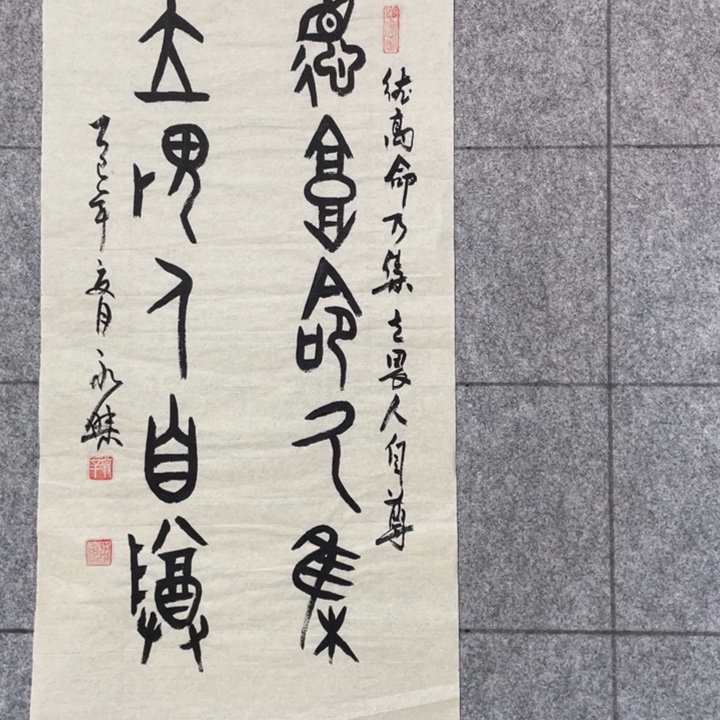 德高命乃集立畏人自尊
德高命乃集
立畏人自尊
巳年夏月永